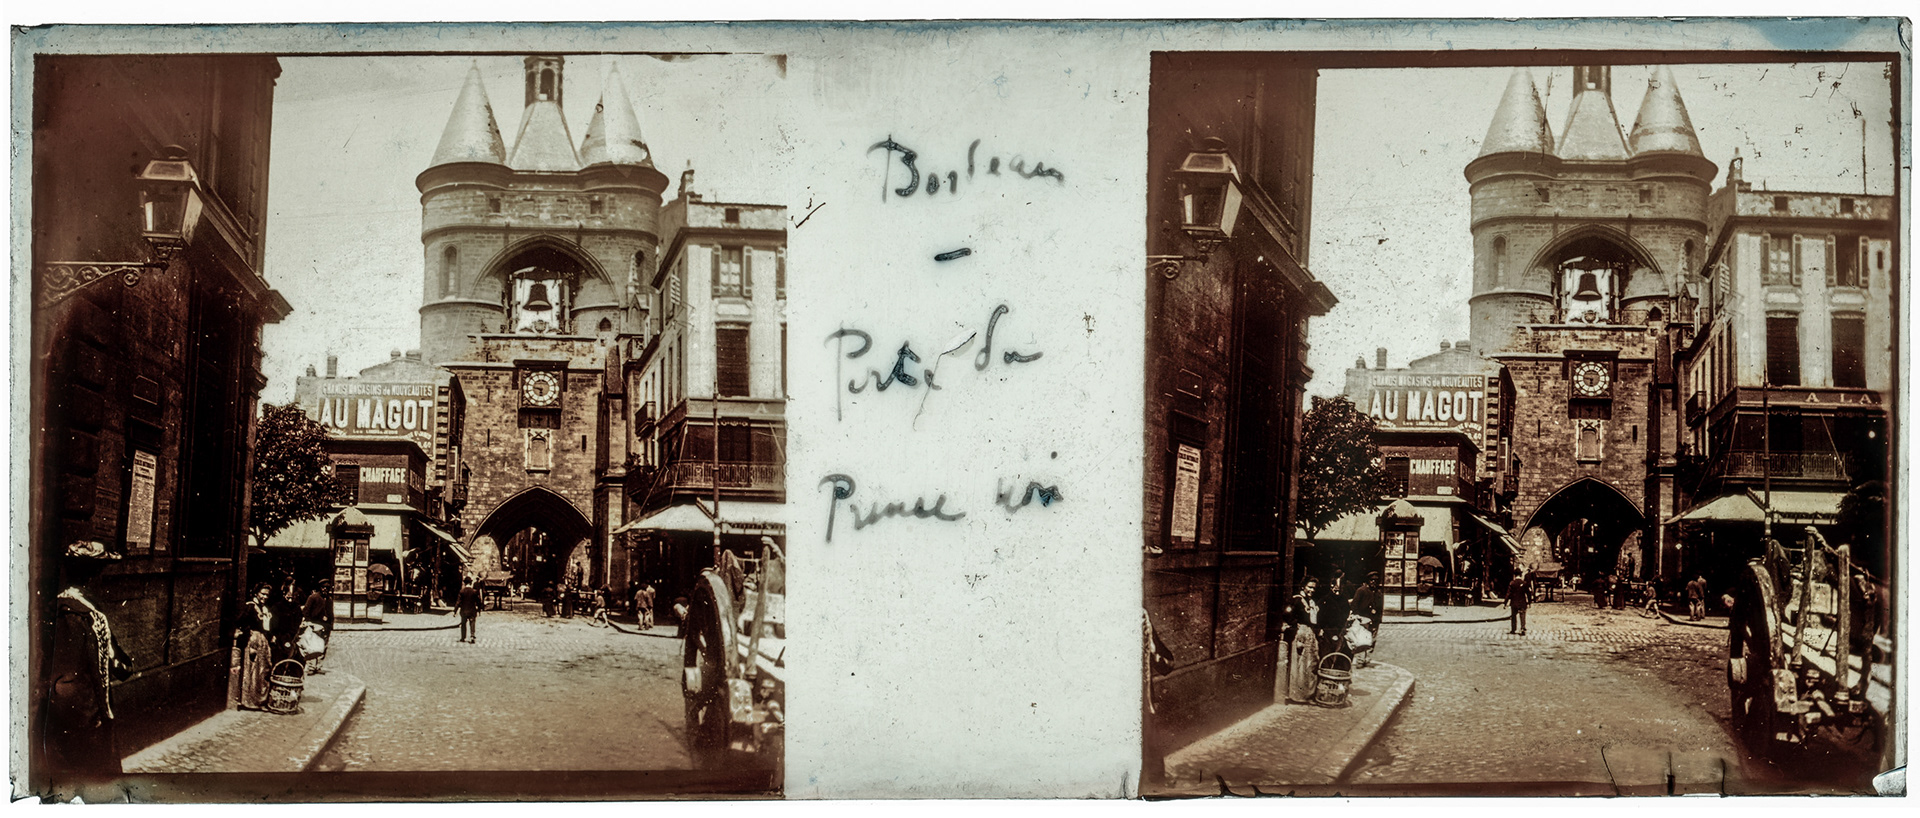 GRANDS MAGASINS de NOUVEAUTES
AU MAGOT
CHAUFFAGE
Bordeaux
-
Porte du
Prince noir
GRANDS MAGASINS de NOUVEAUTES
AU MAGOT
CHAUFFAGE
A LA